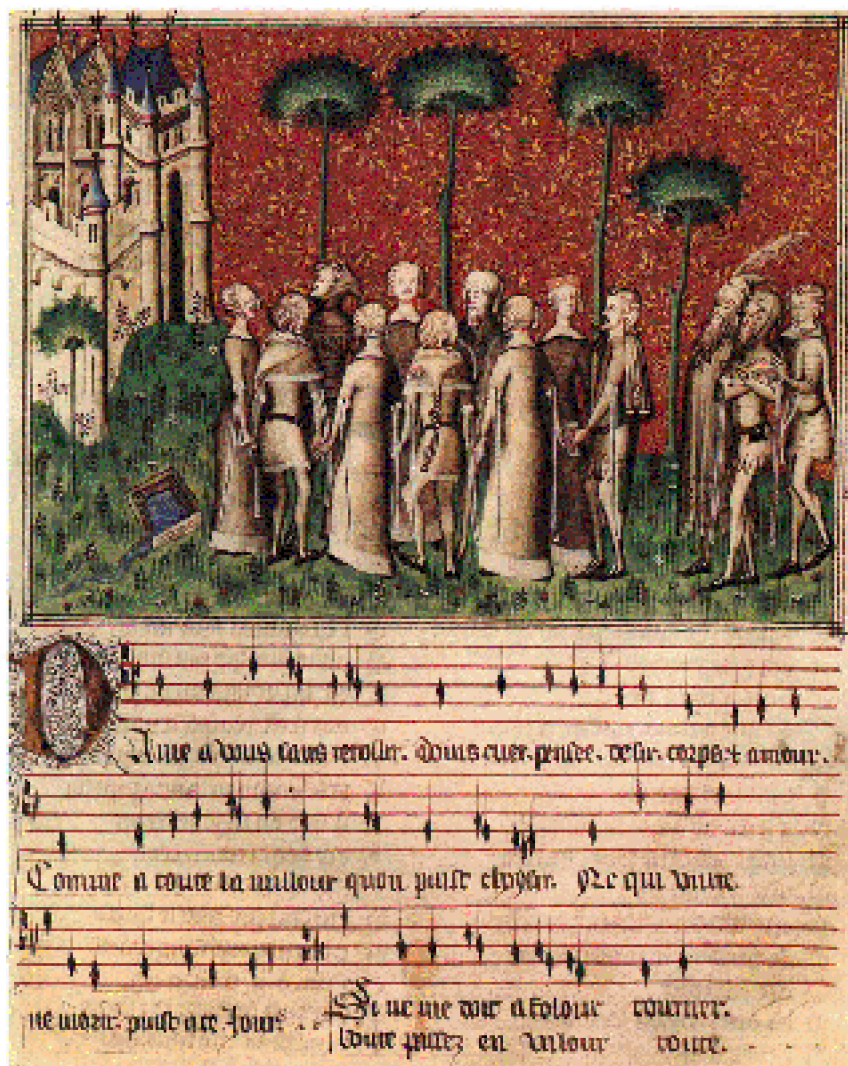 Dame a vous sans retollir. douns cuer. pensee. desir. corps & amour.
Comme a toute la millour quon puist choysir. Ne qui vivre.
ne morir. puist a ce jour. Si ne me doit a folour tourner.
toute en valour toute.